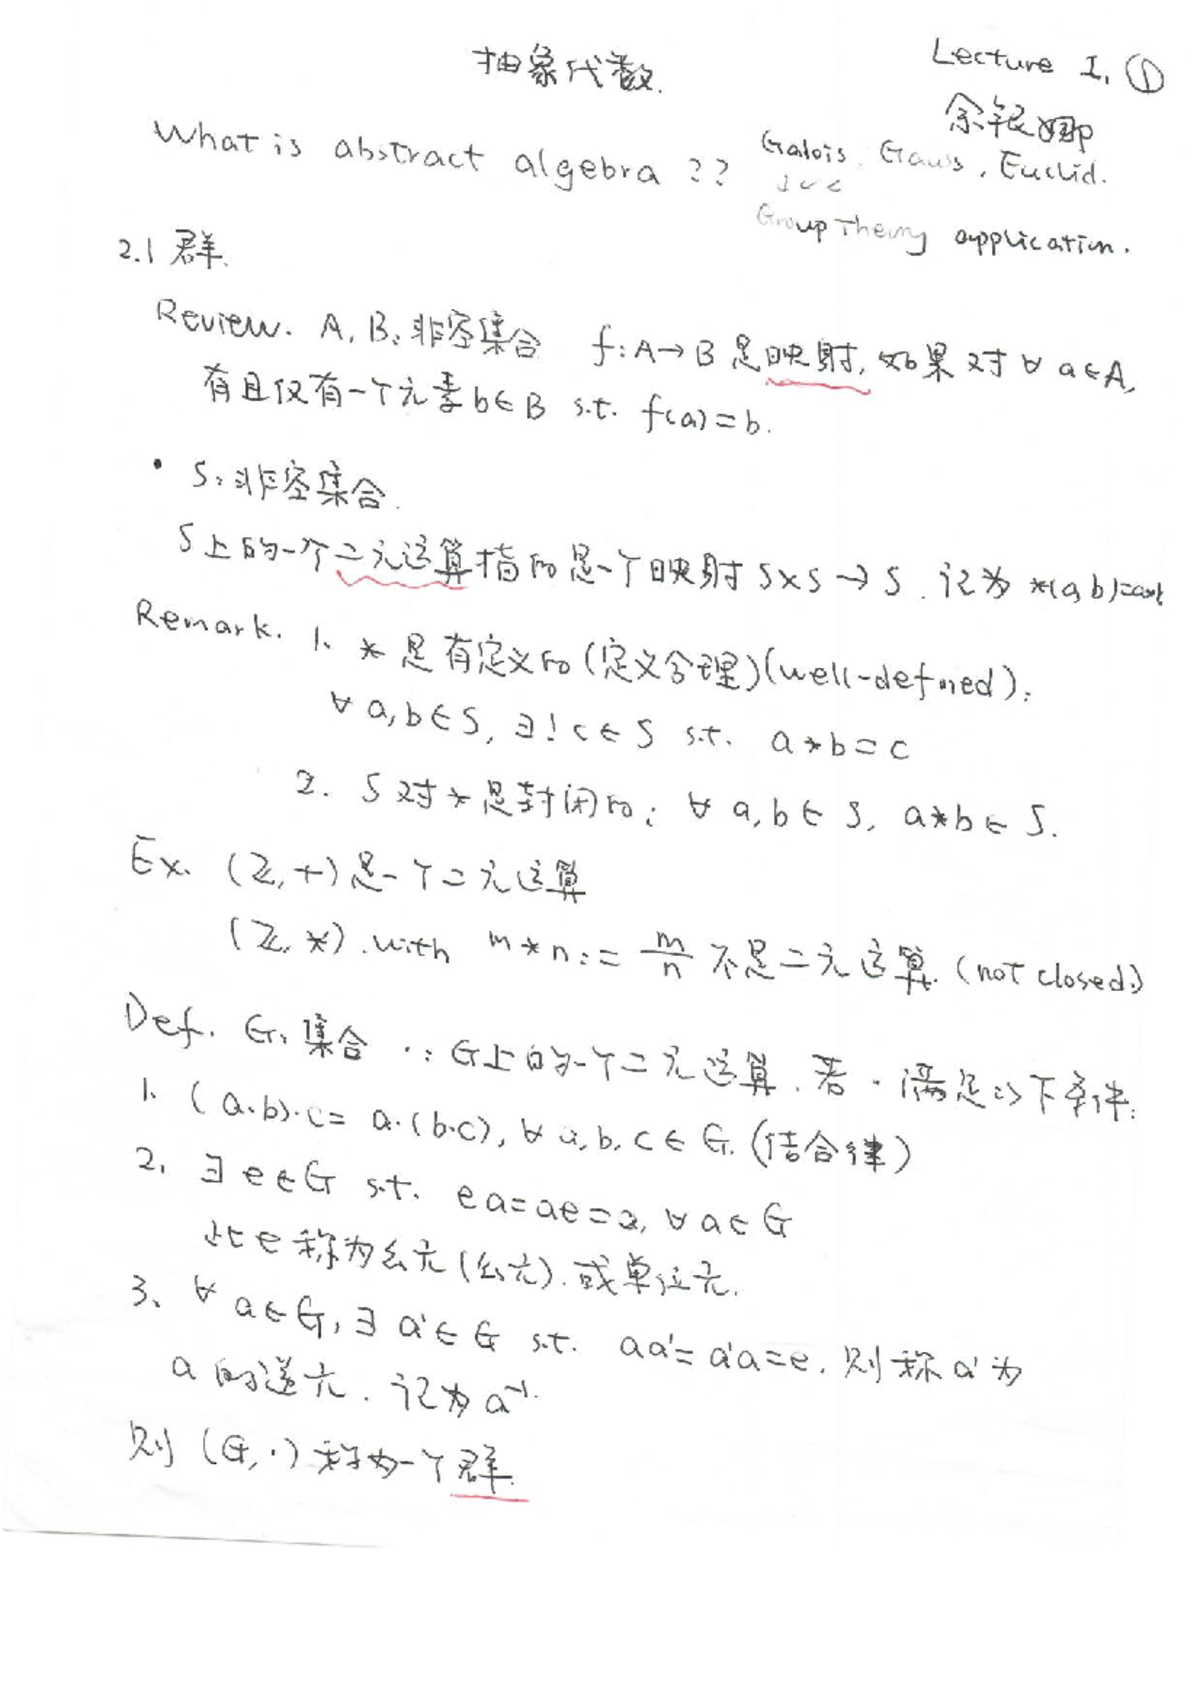 抽象代数.
Lecture I. ①
余银娜
What is abstract algebra ??
Galois. Gauss, Euclid.
Group Theory application.
2.1 群.
Review. A, B: 非空集合 f: A→B 是映射, 如果对 ∀ a∈A,
有且仅有一个元素 b∈B s.t. f(a)=b.
• S: 非空集合.
S上的一个二元运算指的是一个映射 S×S→S. 记为 *(a,b)=a*b
Remark. 1. * 是有定义的(定义合理)(well-defined):
∀ a,b∈S, ∃! c∈S s.t. a*b=c
2. S对*是封闭的: ∀ a,b∈S, a*b∈S.
Ex. (ℤ,+)是一个二元运算
(ℤ,*). with m*n:= m/n 不是二元运算. (not closed.)
Def. G: 集合 ·: G上的一个二元运算. 若 · 满足以下条件:
1. (a·b)·c= a·(b·c), ∀ a,b,c∈G. (结合律)
2. ∃ e∈G s.t. ea=ae=a, ∀ a∈G
此e称为幺元(么元). 或单位元.
3. ∀ a∈G, ∃ a'∈G s.t. aa'=a'a=e. 则称 a' 为
a 的逆元. 记为 a⁻¹.
则 (G,·) 称为一个群.